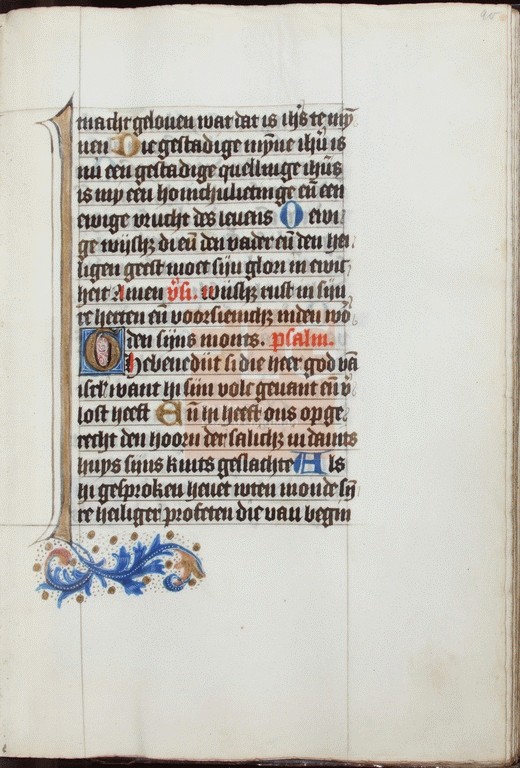 macht gelouen wat dat is ih̄s te mȳ
nen Die gestadige mȳne ihū is
nu een gestadige quellinge ihūs
is my een honichuletinge eū een
ewige vrucht des leuens O ewi
ge wijsh; di eū den vader eū den hei
ligen geest moet sijn glori in ewic
heit Amen v̄si. wijsh; rust in sijn
re herten eū voorsienich; inden wō
den sijns monts. psalm.
Ghebenedijt si die heer god vā
isrl̄ want hi sijn volc geuant eū v̄
lost heeft Eū hi heeft ons opge
recht den hoorn der salich; in dauits
huys sijns kints geslachte Als
hi gesproken heuet wten monde sij
re heiliger profeten die van begin